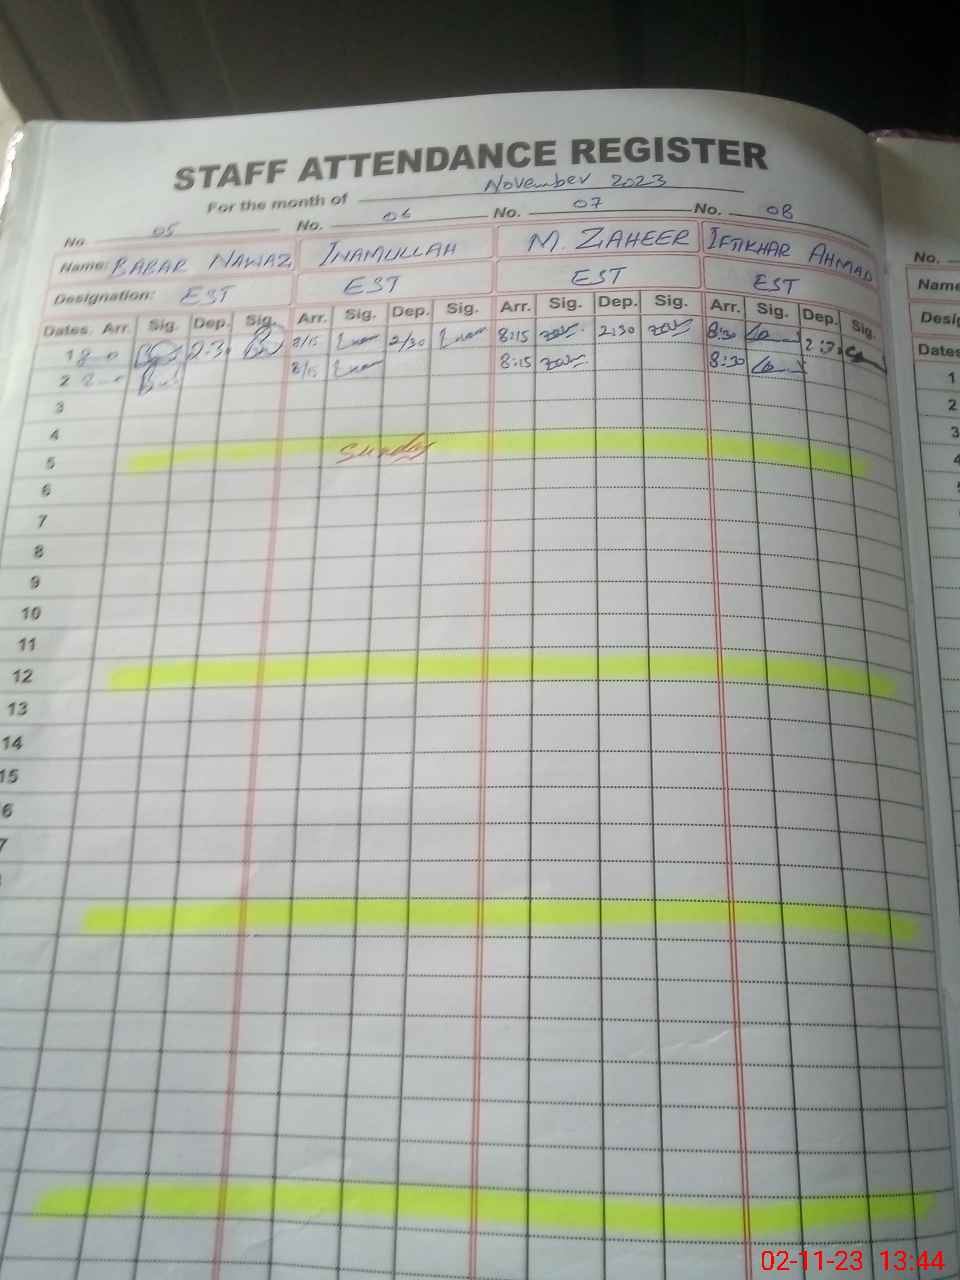 STAFF ATTENDANCE REGISTER
For the month of November 2023
No. 05 No. 06 No. 07 No. 08
Name: BABAR NAWAZ INAMULLAH M. ZAHEER IFTIKHAR AHMAD
Designation: EST EST EST EST
Dates. Arr. Sig. Dep. Sig. Arr. Sig. Dep. Sig. Arr. Sig. Dep. Sig. Arr. Sig. Dep. Sig.
1 2:30 8/15 2/30 8:15 2:30 8:30 2:30
2 8/15 8:15 8:30
3
4
5 Sunday
6
7
8
9
10
11
12
13
14
15
6
7
No.
Name
Desig
Dates
1
2
3
4
02-11-23 13:44